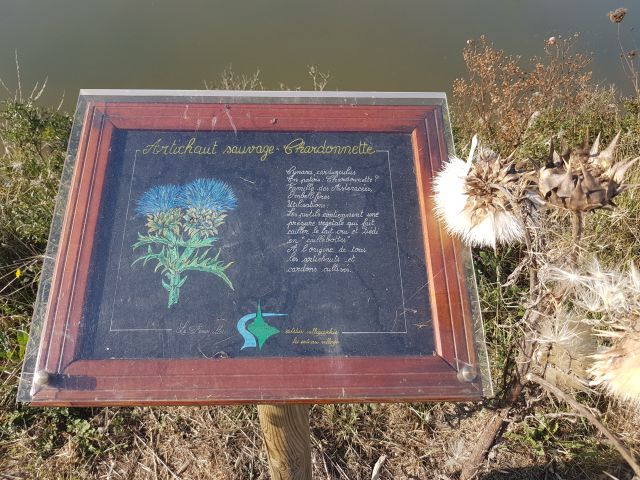 Artichaut sauvage - Chardonnette
Cynara cardunculus
En patois: Chardonnette
Famille des Asteracées,
Ombellifères
Utilisations:
Les pistils contiennent une
présure végétale qui fait
cailler le lait cru et tiède
en "caillebottes"
A l'origine de tous
les artichauts et
cardons cultivés.
Le
atelier calligraphie